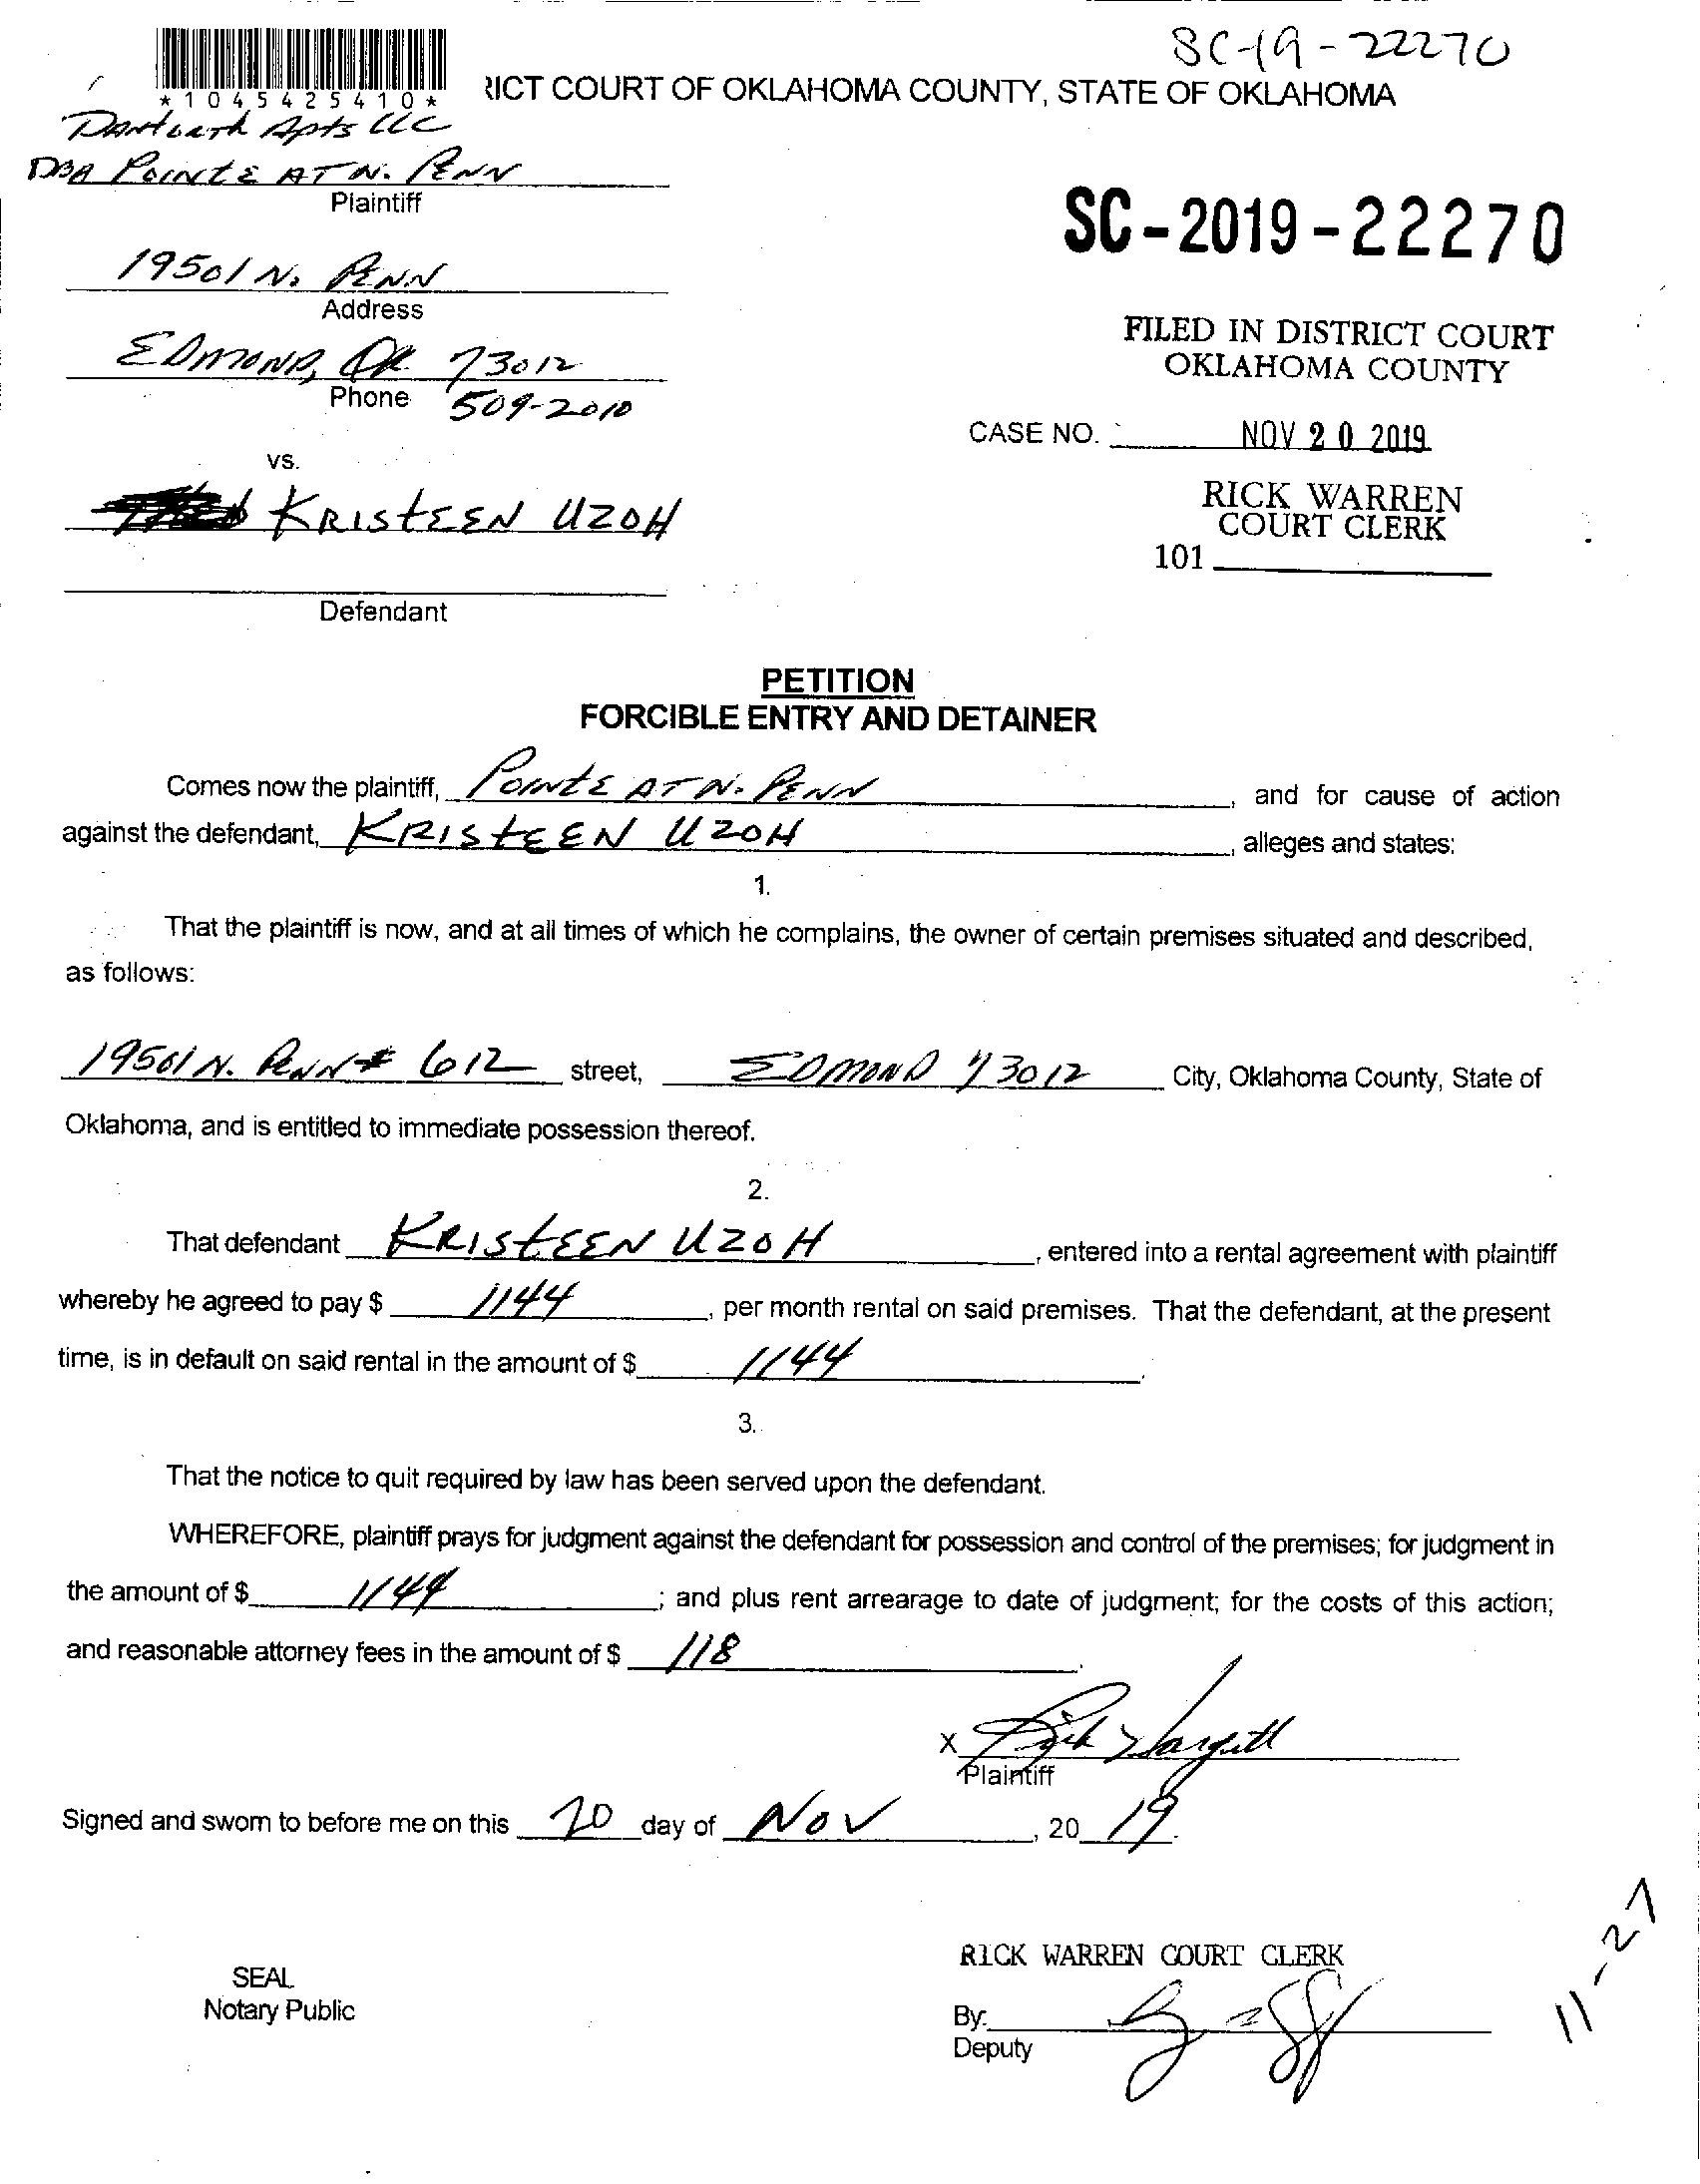 SC-19-22270
*1045425410*
RICT COURT OF OKLAHOMA COUNTY, STATE OF OKLAHOMA
Apts LLC
DBA POINTE AT N. PENN
Plaintiff
SC-2019-22270
19501 N. PENN
Address
FILED IN DISTRICT COURT
OKLAHOMA COUNTY
EDMOND, OK 73012
Phone 509-2010
CASE NO. NOV 20 2019
vs.
RICK WARREN
COURT CLERK
KRISTEEN UZOH
101
Defendant
PETITION
FORCIBLE ENTRY AND DETAINER
Comes now the plaintiff, POINTE AT N. PENN, and for cause of action
against the defendant, KRISTEEN UZOH, alleges and states:
1.
That the plaintiff is now, and at all times of which he complains, the owner of certain premises situated and described,
as follows:
19501 N. PENN # 612 street, EDMOND 73012 City, Oklahoma County, State of
Oklahoma, and is entitled to immediate possession thereof.
2.
That defendant KRISTEEN UZOH, entered into a rental agreement with plaintiff
whereby he agreed to pay $ 1144, per month rental on said premises. That the defendant, at the present
time, is in default on said rental in the amount of $ 1144.
3.
That the notice to quit required by law has been served upon the defendant.
WHEREFORE, plaintiff prays for judgment against the defendant for possession and control of the premises; for judgment in
the amount of $ 1144; and plus rent arrearage to date of judgment; for the costs of this action;
and reasonable attorney fees in the amount of $ 118.
X
Plaintiff
Signed and sworn to before me on this 20 day of NOV, 20 19.
11-27
RICK WARREN COURT CLERK
SEAL
Notary Public
By:
Deputy